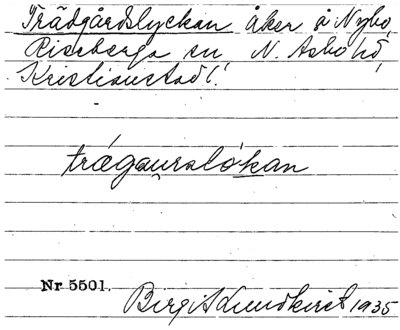 Trädgårdslyckan åker å Nybo,
Riseberga sn, N. Åsbo hd,
Kristianstad l.
trægauraløkan
Nr 5501.
Birgit Lundkvist 1935